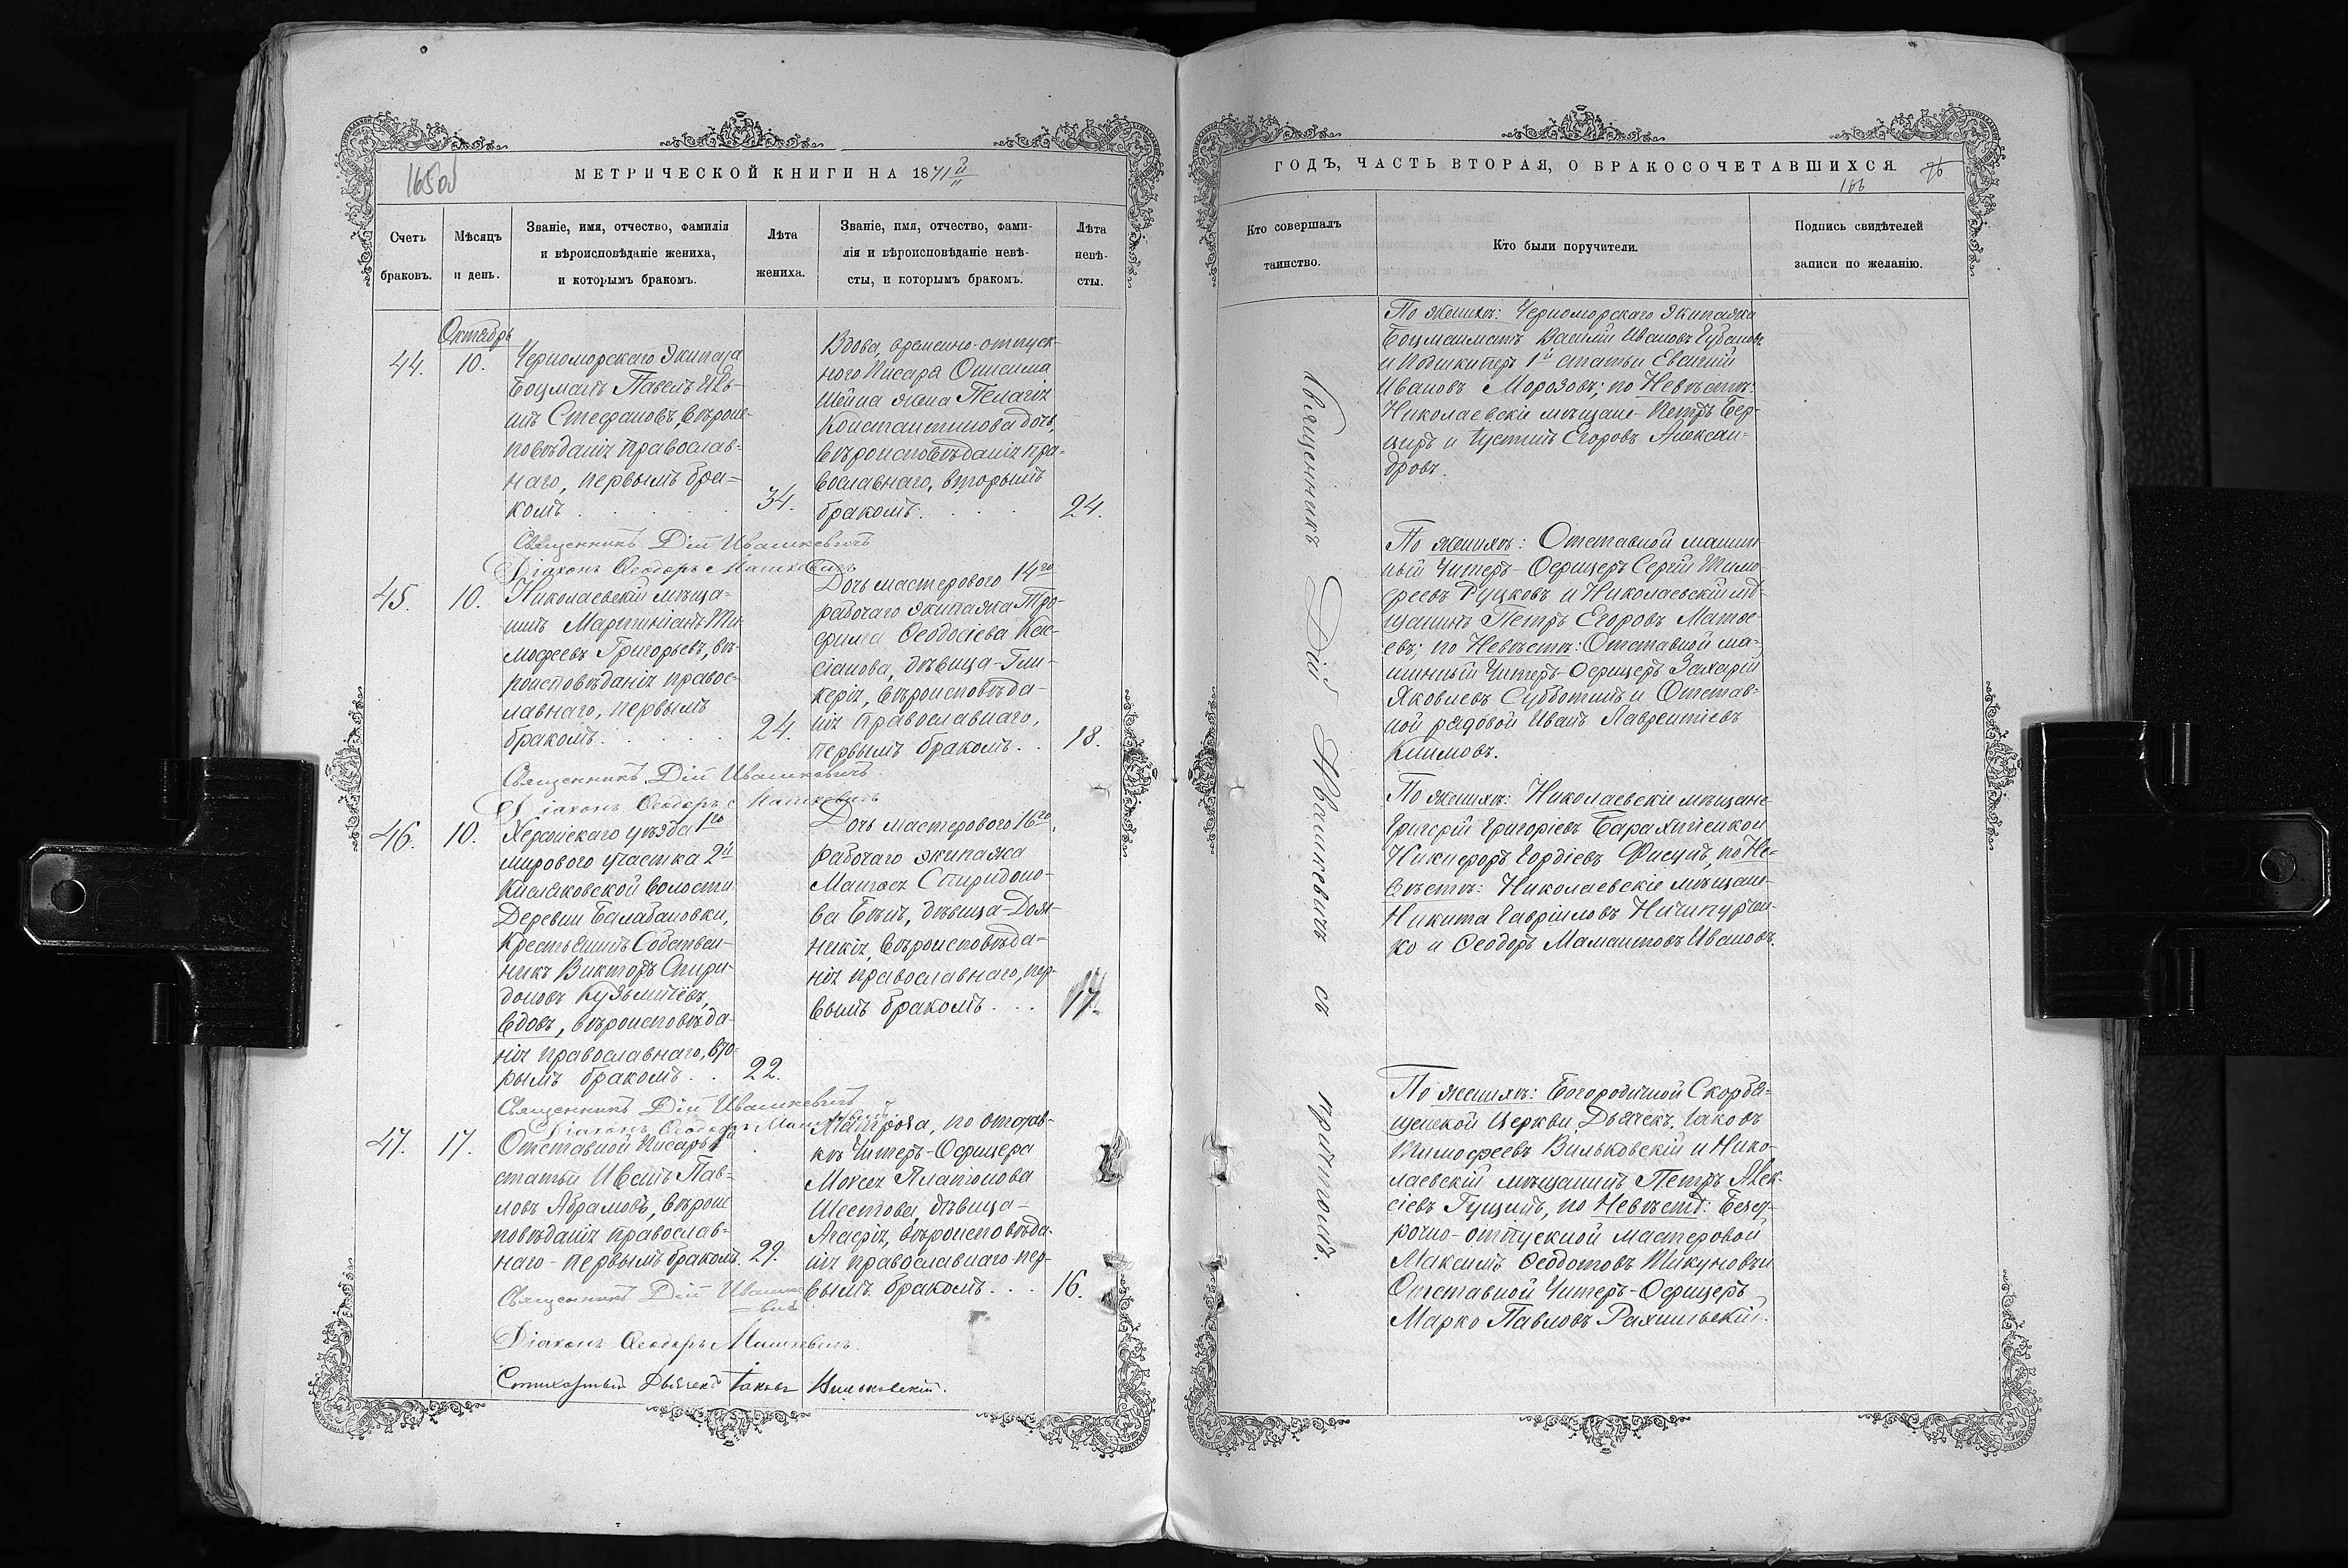 165 об
МЕТРИЧЕСКОЙ КНИГИ НА 1871й
Счетъ браковъ.
Мѣсяцъ и день.
Званіе, имя, отчество, фамилія
и вѣроисповѣданіе жениха,
и которымъ бракомъ.
Лѣта жениха.
Званіе, имя, отчество, фами-
лія и вѣроисповѣданіе невѣ-
сты, и которымъ бракомъ.
Лѣта невѣ-
сты.
Октябрь
44.
10.
Черноморскаго Экипажа
Боцманъ Павелъ
Стефановъ, вѣроис-
повѣданія православ-
наго, первымъ бра-
комъ
34.
Вдова, временно-отпуск-
ного Писаря Онисима
жена Пелагія
Константинова дочь,
вѣроисповѣданія пра-
вославнаго, вторымъ
бракомъ.
24.
Священникъ Дій Ивашкевичъ
Діаконъ Ѳеодоръ Машкевичъ
45.
10.
Николаевскій мѣща-
нинъ Мартиніанъ Ти-
моѳеевъ Григорьевъ, вѣ-
роисповѣданія правос-
лавнаго, первымъ
бракомъ.
24.
Дочь мастерового 14го
рабочаго экипажа Тро-
фима Ѳеодосіева Кас-
сіанова, дѣвица-Гли-
керія, вѣроисповѣда-
нія православнаго,
первымъ бракомъ.
18.
Священникъ Дій Ивашкевичъ
Діаконъ Ѳеодоръ Машкевичъ
46.
10.
Херсонскаго уѣзда 1го
мирового участка 2й
Кисляковской волости
Деревни Балабановки,
Крестьянинъ Собствен-
никъ Викторъ Спири-
доновъ Кузьмичевъ,
вдовъ, вѣроисповѣда-
нія православнаго, вто-
рымъ бракомъ.
22.
Дочь мастерового 16го
рабочаго экипажа
Спиридоно-
ва дѣвица-Дом-
никія, вѣроисповѣда-
нія православнаго, пер-
вымъ бракомъ.
17.
Священникъ Дій Ивашкевичъ
Діаконъ Ѳеодоръ Машкевичъ
47.
17.
Отставной Писарь
статьи Иванъ Пав-
ловъ Абрамовъ, вѣроис
повѣданія православ-
наго-первымъ бракомъ.
29.
Матроза, по отстав-
къ Унтеръ-Офицера
Моисея Платонова
Шестова, дѣвица-
Агаѳія, вѣроисповѣда-
нія православнаго пер-
вымъ бракомъ.
16.
Священникъ Дій Ивашке
вичъ
Діаконъ Ѳеодоръ Машкевичъ.
Стихарный Дьячекъ Іаковъ Вильковскій.
ГОДЪ, ЧАСТЬ ВТОРАЯ, О БРАКОСОЧЕТАВШИХСЯ.
76
166
Кто совершалъ
таинство.
Кто были поручители.
Подпись свидѣтелей
записи по желанію.
Священникъ Дій Ивашкевичъ съ причтомъ.
По женихѣ: Черноморскаго экипажа
Боцманматъ Василій Ивановъ Губановъ
и Подшкиперъ 1й статьи Евгеній
Ивановъ Морозовъ; по Невѣстѣ:
Николаевскіе мѣщане Петръ
и Густинъ Егоровъ Алексан-
дровъ.
По женихѣ: Отставной машин-
ный Унтеръ-Офицеръ Сергій Тимо-
феевъ Руцковъ и Николаевскій мѣ-
щанинъ Петръ Егоровъ Матве-
евъ; по Невѣстѣ: Отставной ма-
шинный Унтеръ-Офицеръ Захарій
Яковлевъ Субботинъ и Отстав-
ной рядовой Иванъ Лаврентіевъ
Климовъ.
По женихѣ: Николаевскіе мѣщане
Григорій Григоріевъ
Никифоръ Гордіевъ Фисунъ, по Не-
вѣстѣ: Николаевскіе мѣщане-
Никита Гавріиловъ Ничипурен-
ко и Ѳеодоръ Мамантовъ Ивановъ.
По женихѣ: Богородичной Скорбя-
щенской Церкви Дьячекъ Іаковъ
Тимофеевъ Вильковскій и Нико-
лаевскій мѣщанинъ Петръ Алек-
сіевъ Гущинъ, по Невѣстѣ: Безср-
рочно-отпускной мастеровой
Максимъ Ѳеодотовъ Тикуновъ и
Отставной Унтеръ-Офицеръ
Марко Павловъ Рахильскій.